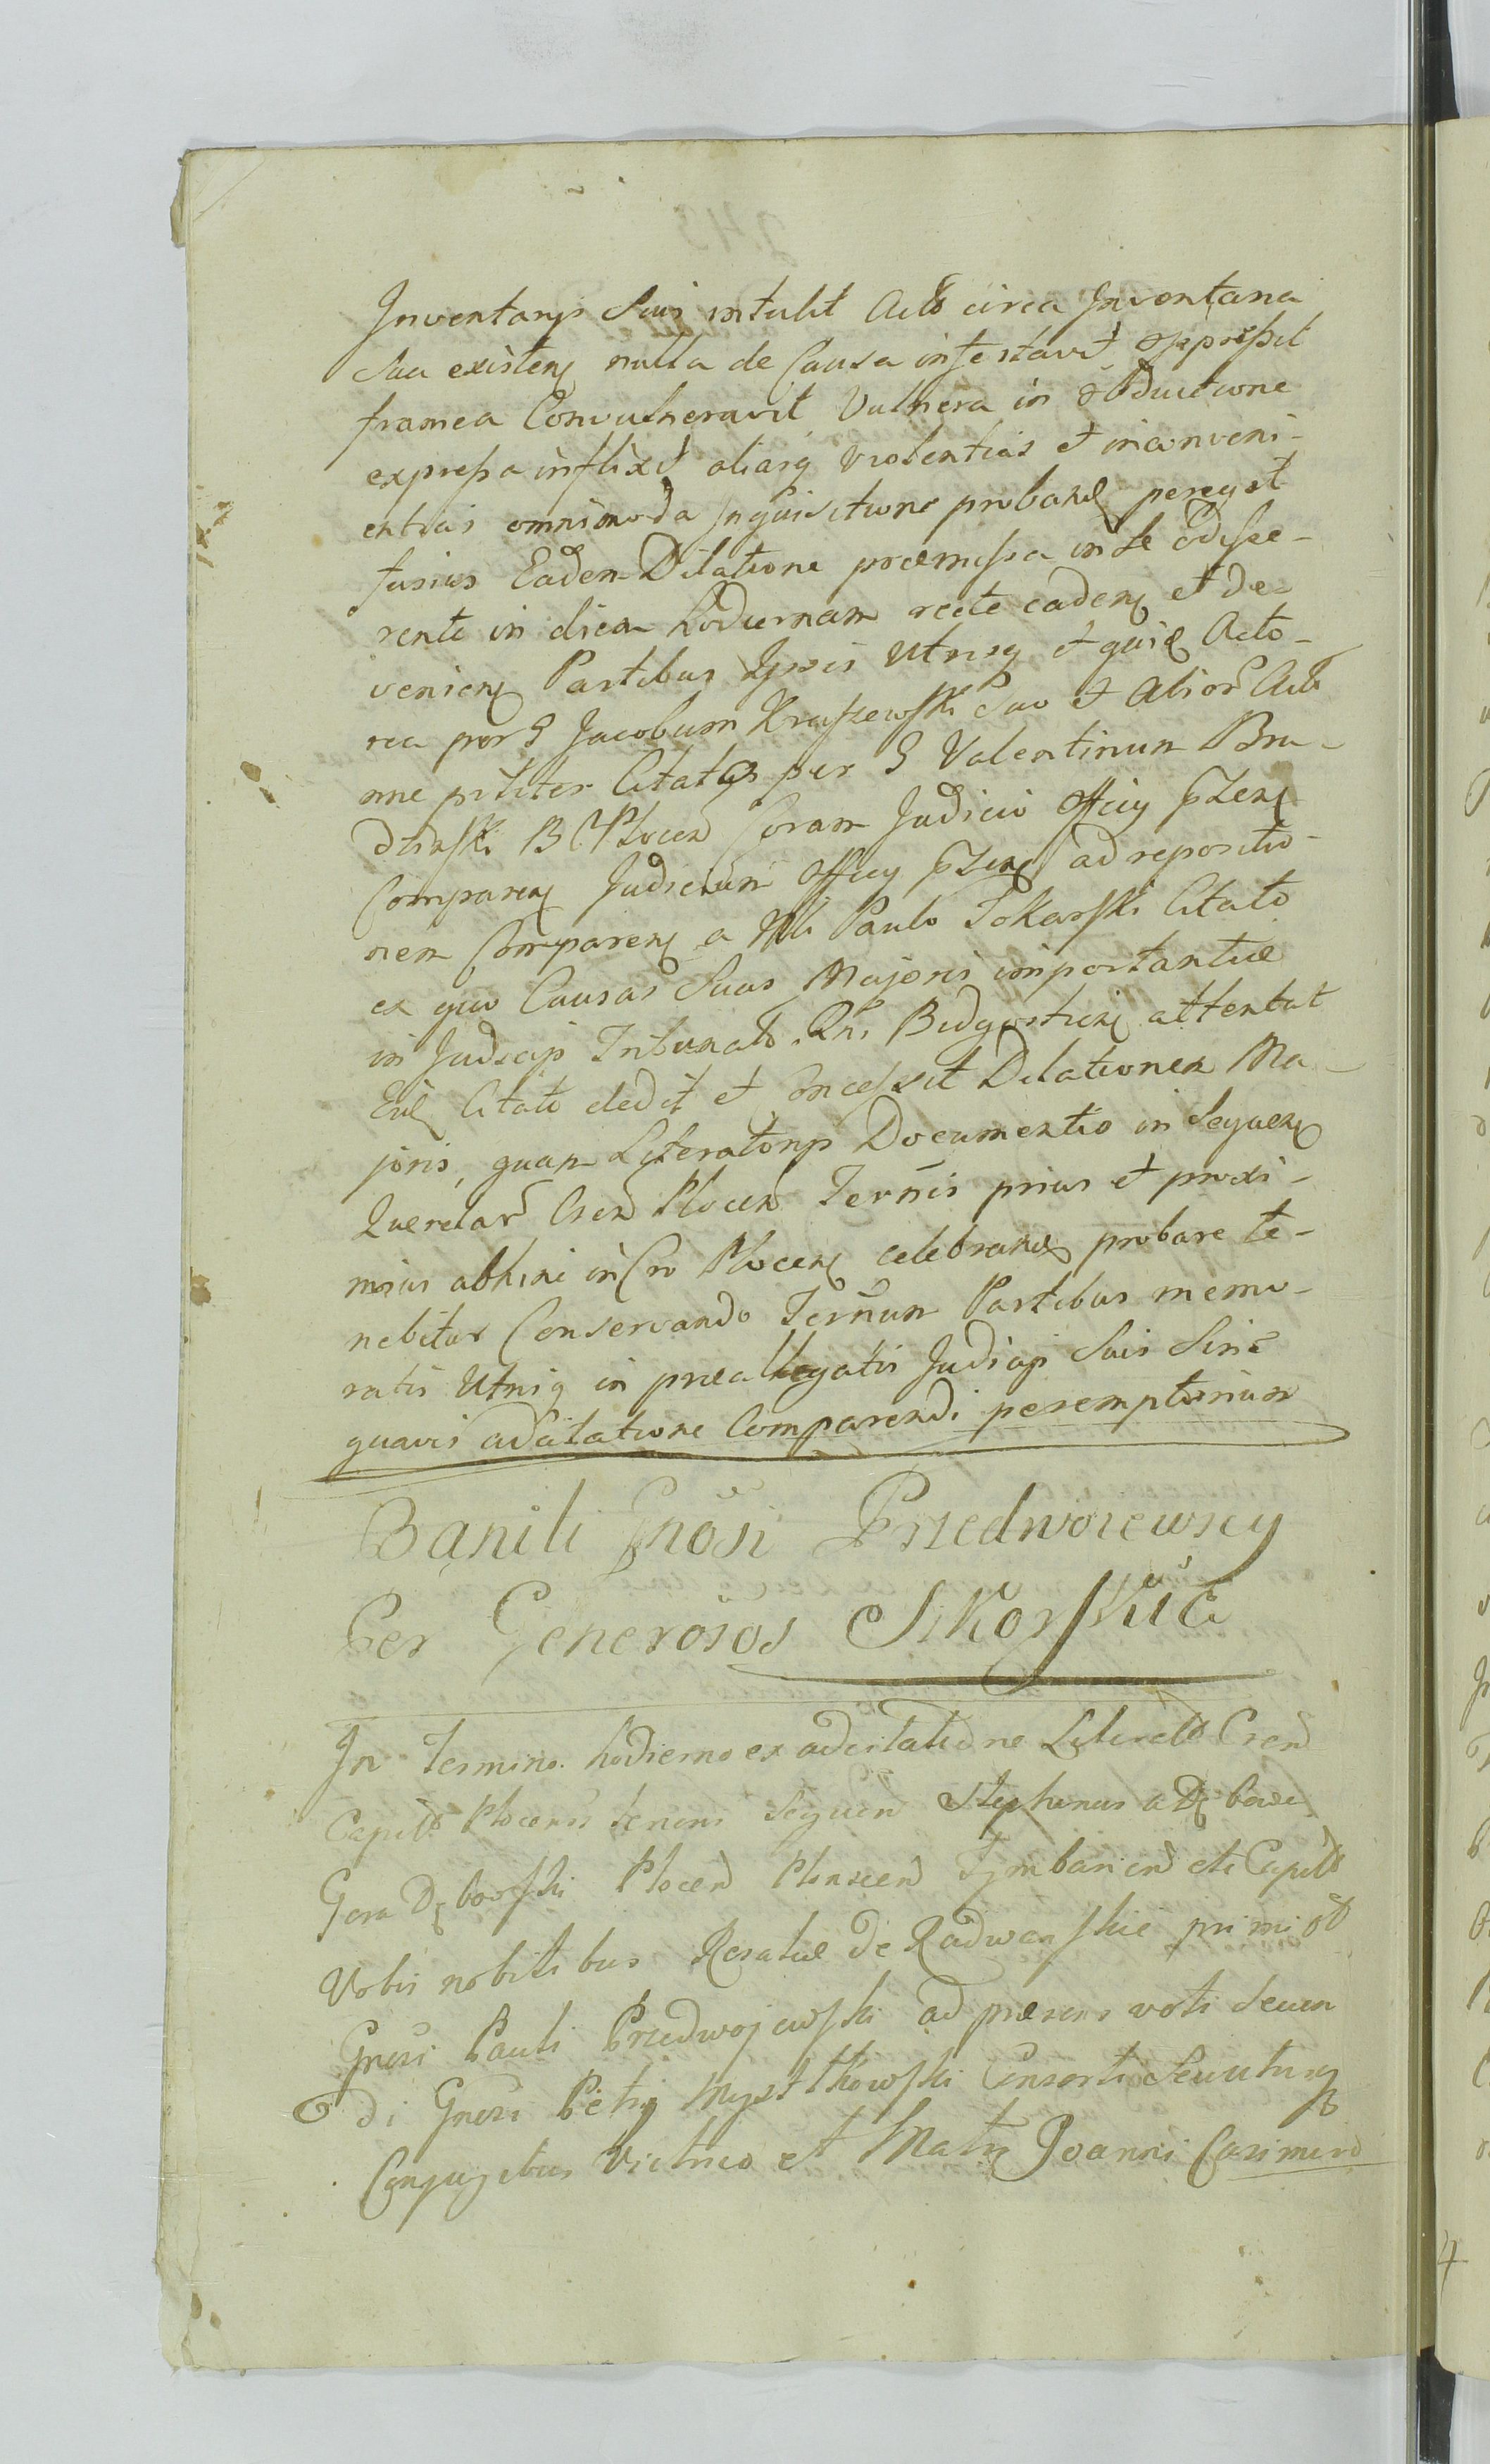 Inventarys Suis intulit Actor circa Inventaria
Sua existen nulla de Causa infestavit oppressit
framea Convulneravit Vulnera in obductione
expressa inflixit aliasq violentias et inconveni-
entias omnimoda Inquisitione proband peregit
fusius Eadem Dilatione praemissa in se edisse-
rente in diem hodiernam recte caden et de
venien Partibus Ipsis Utrisq et quid Acto-
rea per G Jacobum Kraszewski Suo et alior Acto
nne pttiter Citatus per G Valentinum Bru-
dzinski B Plocen Coram Judicio Officy pszen
Comparen Judicium Officy pszen ad repositio-
nem Comparen a Nbli Paulo Tokarski Citato
ex quo Causas Suas Majoris importantiae
in Judicys Tribunal Rni Bidgostien attentat
Eid Citato dedit et concessit Dilationem Ma-
joris, quam Literatorys Documentis in Sequen
Querelar Cren Plocen Ternis prius et proxi-
mius abhinc in Cro Plocen celebrand probare te-
nebitur Conservando Ternum Partibus memo-
ratis Utrisq in praeallegatis Judicys Suis Sine
quavis adcitatione Comparendi peremptorium
Baniti Gnosi Przedwoiewscy
Per Generosos Sikorskie
In Termino hodierno ex adcitatione Literali Cren
Capitli Plocensi tenoris Sequen Stephanus a Dębowa
Gora Dębowski Plocen Plonscen Tymbarien etc Capits
Vobis nobilibus Renatae de Radwanskie primi olt
Gnosi Pauli Przedwojewski ad praesens voti Secun
di Gnosi Petry Mystkowski Consorti Seu utrisq
Conjugibus Victrico et Matri Joanni Casimiro